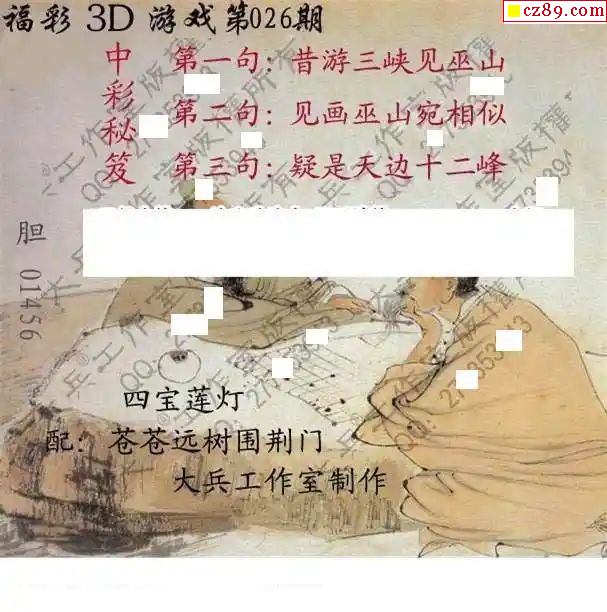 cz89.com
福彩 3D 游戏第026期
中彩秘笈
第一句：昔游三峡见巫山
第二句：见画巫山宛相似
第三句：疑是天边十二峰
胆 01456
四宝莲灯
配：苍苍远树围荆门
大兵工作室制作